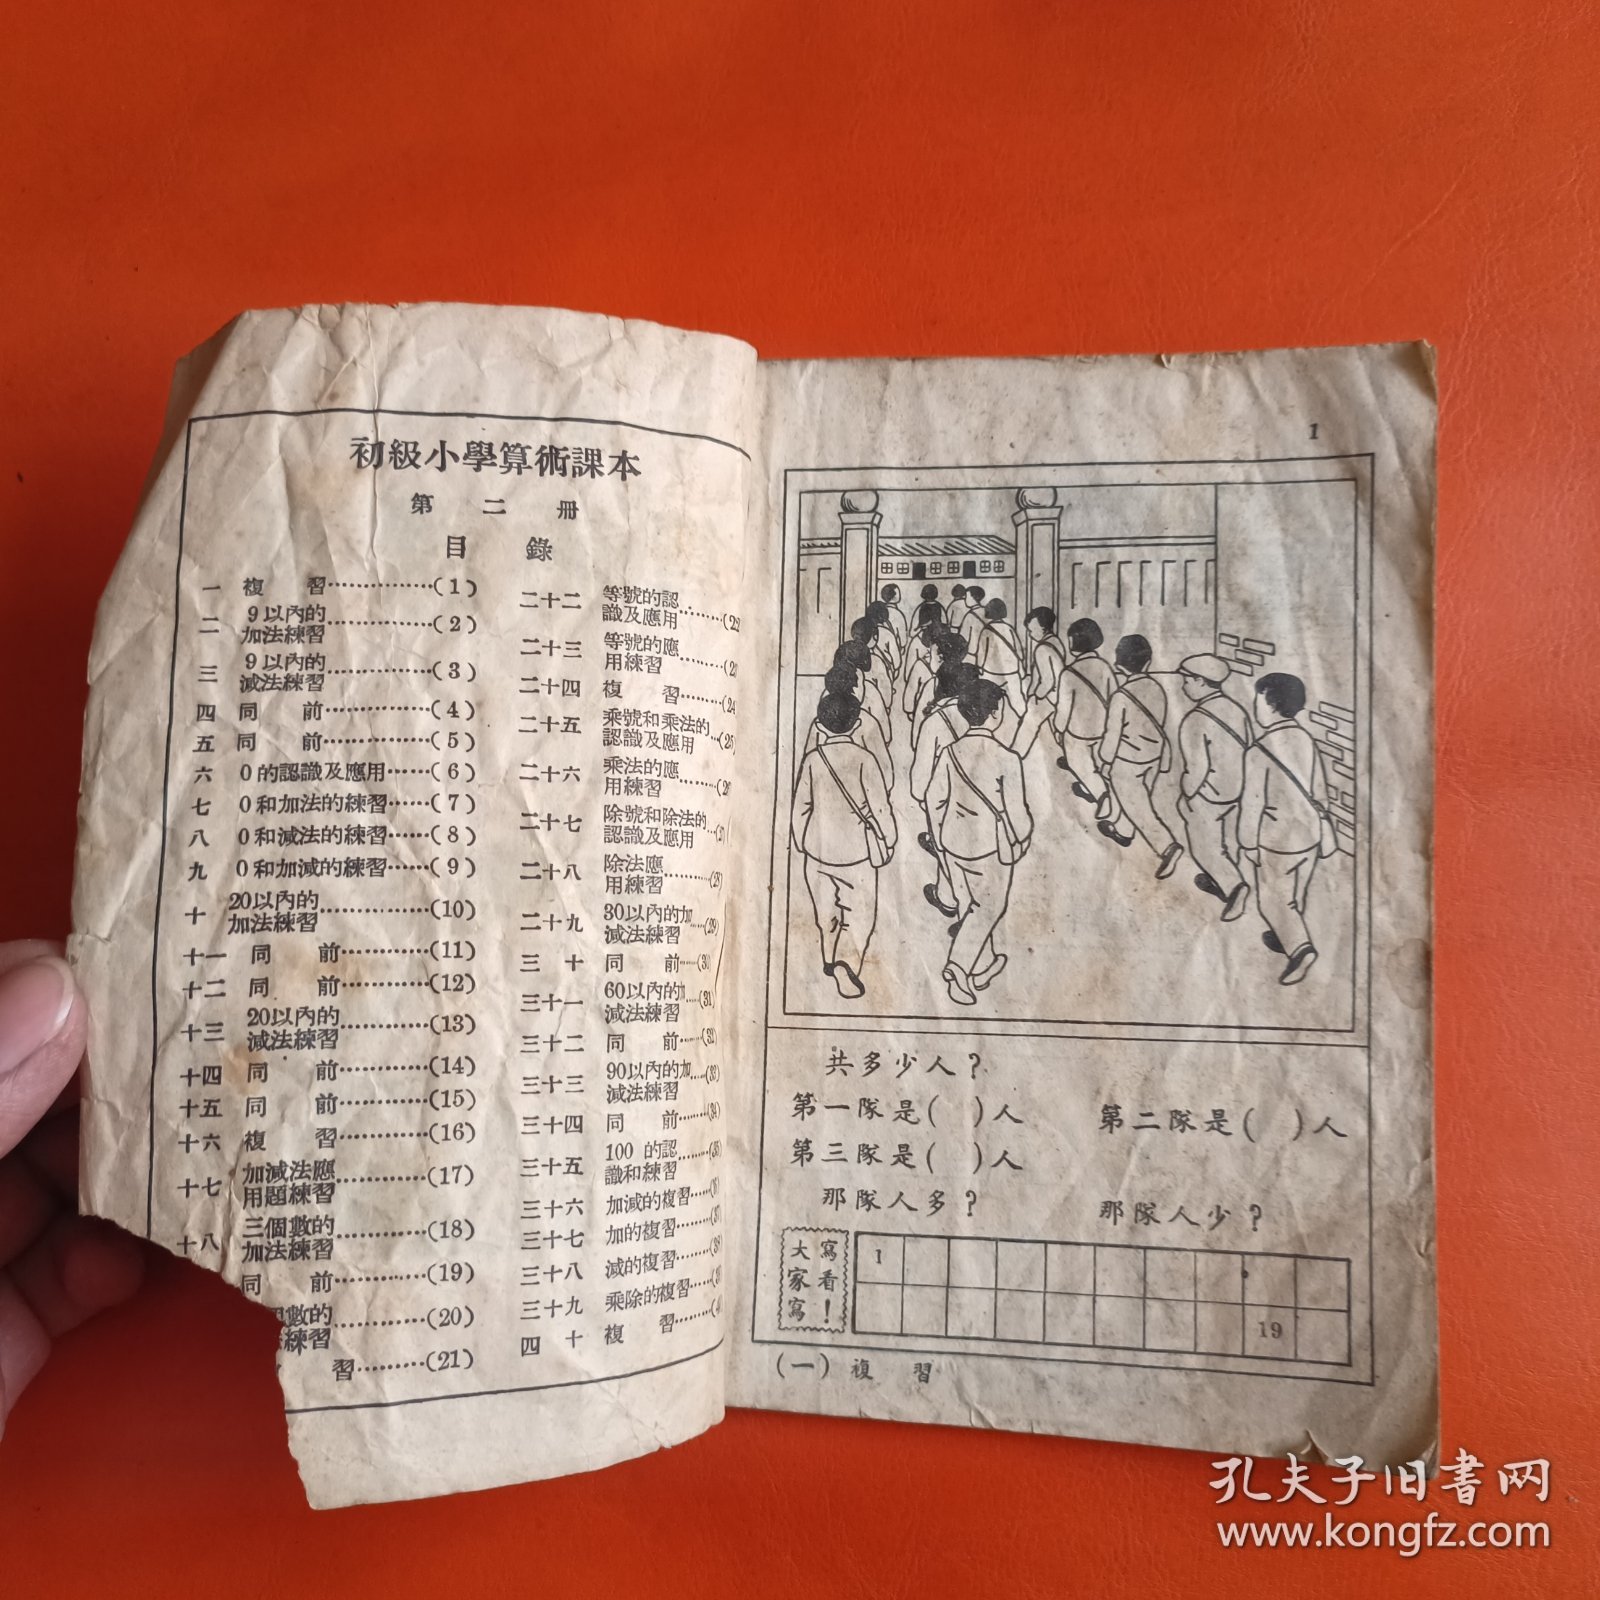 初級小學算術課本
第 二 冊
目 錄
一 複 習……………(1)
二 9以內的加法練習……………(2)
三 9以內的減法練習……………(3)
四 同 前……………(4)
五 同 前……………(5)
六 0的認識及應用……(6)
七 0和加法的練習……(7)
八 0和減法的練習……(8)
九 0和加減的練習……(9)
十 20以內的加法練習……………(10)
十一 同 前…………(11)
十二 同 前…………(12)
十三 20以內的減法練習…………(13)
十四 同 前…………(14)
十五 同 前…………(15)
十六 複 習…………(16)
十七 加減法應用題練習…………(17)
十八 三個數的加法練習…………(18)
同 前…………(19)
數的練習…………(20)
習………(21)
二十二 等號的認識及應用………(22
二十三 等號的應用練習………(23
二十四 複 習………(24
二十五 乘號和乘法的認識及應用…(25)
二十六 乘法的應用練習………(26
二十七 除號和除法的認識及應用…(27)
二十八 除法應用練習…………(28)
二十九 30以內的加減法練習……(29)
三 十 同 前……(30
三十一 60以內的加減法練習……(31)
三十二 同 前……(32)
三十三 90以內的加減法練習……(33)
三十四 同 前………(34)
三十五 100 的認識和練習………(35)
三十六 加減的複習……(36)
三十七 加的複習………(37)
三十八 減的複習………(38)
三十九 乘除的複習……(39)
四 十 複 習………(40
1
共多少人？
第一隊是( )人 第二隊是( )人
第三隊是( )人
那隊人多？ 那隊人少？
大家寫
寫看！
1
19
(一) 複 習
孔夫子旧书网
www.kongfz.com